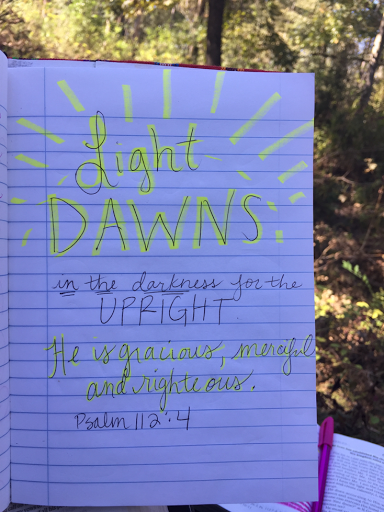 Light
DAWNS:
in the darkness for the
UPRIGHT
He is gracious, merciful
and righteous.
Psalm 112:4